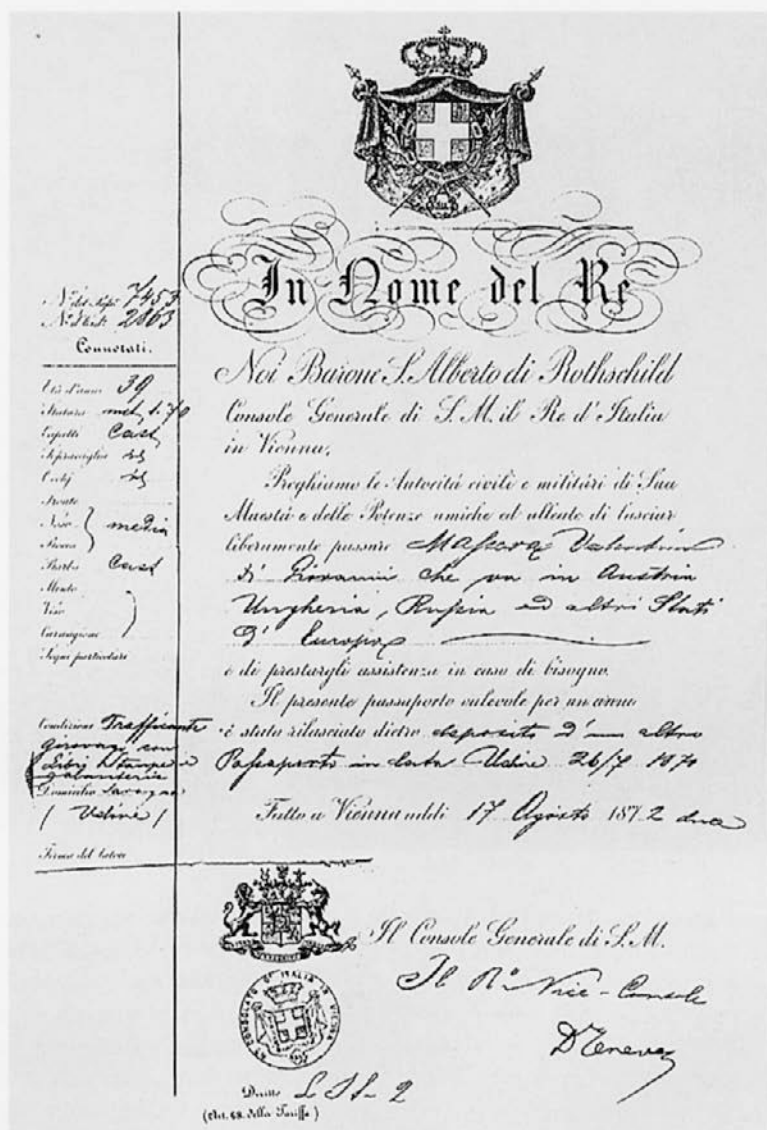 In Nome del Re
7453
2863
Connotati.
39
Statura met. 1.70
Capelli Cast
Sopracciglia id
Occhj id
Fronte
Naso media
Bocca
Barba Cast
Mento
Viso
Carnagione
Segni particolari
Condizione Trafficante
girovago con
Libri Stampe e
galanterie
Domicilio
(Udine)
Firma del latore
Noi Barone S. Alberto di Rothschild
Console Generale di S. M. il Re d'Italia
in Vienna,
Preghiamo le Autorità civili e militari di Sua
Maestà e delle Potenze amiche ed alleate di lasciar
liberamente passare
di Giovanni che va in Austria
Ungheria, Russia ed altri Stati
d'Europa
e di prestargli assistenza in caso di bisogno.
Il presente passaporto valevole per un anno
è stato rilasciato dietro deposito d'un altro
Passaporto in data Udine 26/7
Fatto a Vienna addi 17 Agosto 1872 due
Il Console Generale di S. M.
Il Ro Vice-Console
Ro CONSOLATO D'ITALIA IN VIENNA
Diritto L
(Art. 68. della Tariffa)